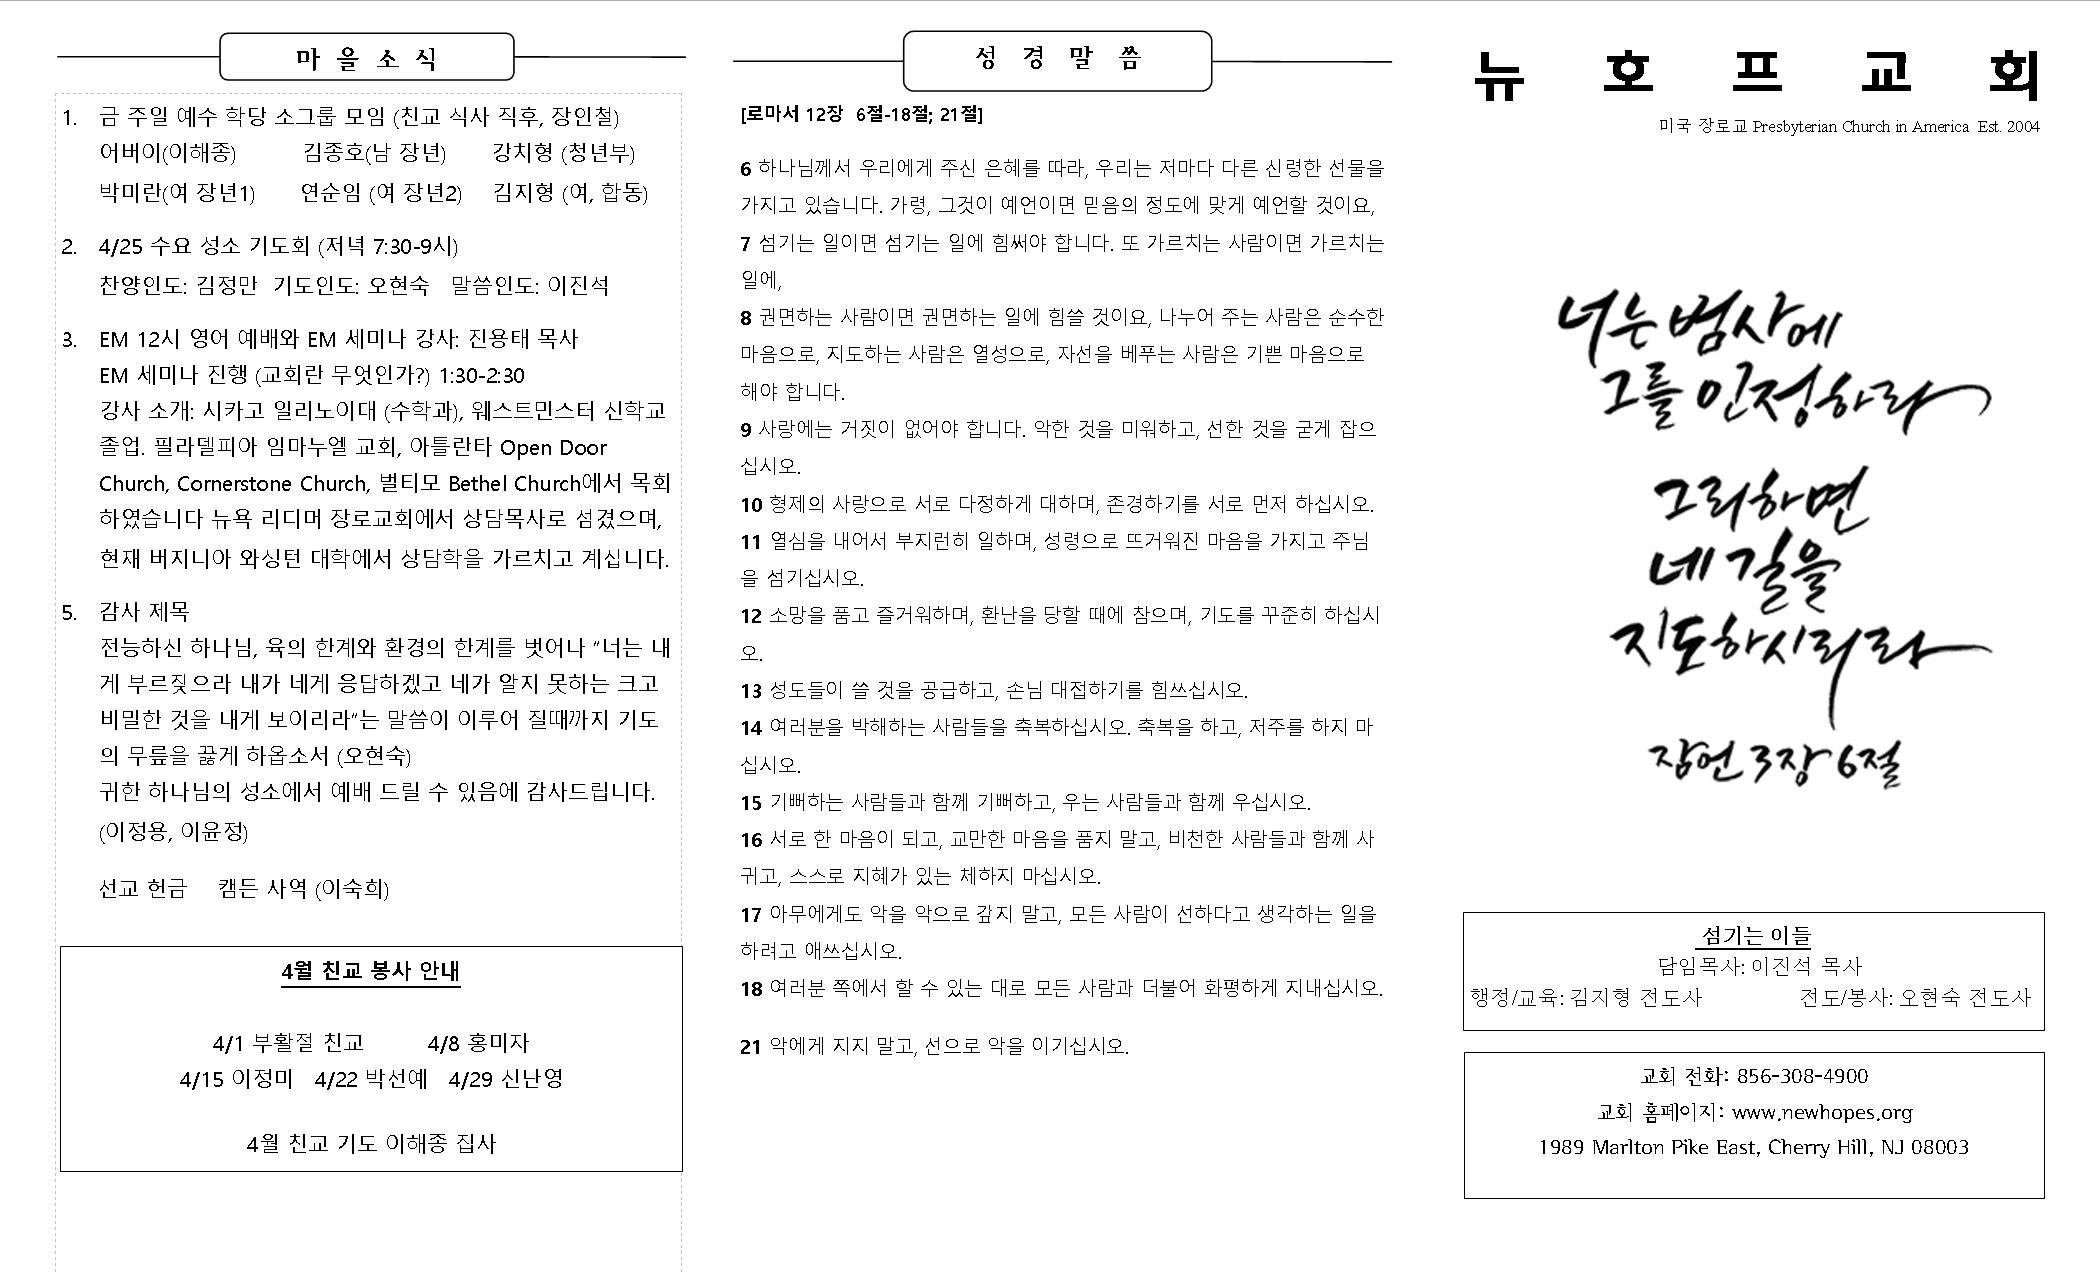 마 을 소 식
1. 금 주일 예수 학당 소그룹 모임 (친교 식사 직후, 장인철)
어버이(이해종) 김종호(남 장년) 강치형 (청년부)
박미란(여 장년1) 연순임 (여 장년2) 김지형 (여, 합동)
2. 4/25 수요 성소 기도회 (저녁 7:30-9시)
찬양인도: 김정만 기도인도: 오현숙 말씀인도: 이진석
3. EM 12시 영어 예배와 EM 세미나 강사: 진용태 목사
EM 세미나 진행 (교회란 무엇인가?) 1:30-2:30
강사 소개: 시카고 일리노이대 (수학과), 웨스트민스터 신학교
졸업. 필라델피아 임마누엘 교회, 아틀란타 Open Door
Church, Cornerstone Church, 벌티모 Bethel Church에서 목회
하였습니다 뉴욕 리디머 장로교회에서 상담목사로 섬겼으며,
현재 버지니아 와싱턴 대학에서 상담학을 가르치고 계십니다.
5. 감사 제목
전능하신 하나님, 육의 한계와 환경의 한계를 벗어나 “너는 내
게 부르짖으라 내가 네게 응답하겠고 네가 알지 못하는 크고
비밀한 것을 내게 보이리라”는 말씀이 이루어 질때까지 기도
의 무릎을 끓게 하옵소서 (오현숙)
귀한 하나님의 성소에서 예배 드릴 수 있음에 감사드립니다.
(이정용, 이윤정)
선교 헌금 캠든 사역 (이숙희)
4월 친교 봉사 안내
4/1 부활절 친교 4/8 홍미자
4/15 이정미 4/22 박선예 4/29 신난영
4월 친교 기도 이해종 집사
성 경 말 씀
[로마서 12장 6절-18절; 21절]
6 하나님께서 우리에게 주신 은혜를 따라, 우리는 저마다 다른 신령한 선물을
가지고 있습니다. 가령, 그것이 예언이면 믿음의 정도에 맞게 예언할 것이요,
7 섬기는 일이면 섬기는 일에 힘써야 합니다. 또 가르치는 사람이면 가르치는
일에,
8 권면하는 사람이면 권면하는 일에 힘쓸 것이요, 나누어 주는 사람은 순수한
마음으로, 지도하는 사람은 열성으로, 자선을 베푸는 사람은 기쁜 마음으로
해야 합니다.
9 사랑에는 거짓이 없어야 합니다. 악한 것을 미워하고, 선한 것을 굳게 잡으
십시오.
10 형제의 사랑으로 서로 다정하게 대하며, 존경하기를 서로 먼저 하십시오.
11 열심을 내어서 부지런히 일하며, 성령으로 뜨거워진 마음을 가지고 주님
을 섬기십시오.
12 소망을 품고 즐거워하며, 환난을 당할 때에 참으며, 기도를 꾸준히 하십시
오.
13 성도들이 쓸 것을 공급하고, 손님 대접하기를 힘쓰십시오.
14 여러분을 박해하는 사람들을 축복하십시오. 축복을 하고, 저주를 하지 마
십시오.
15 기뻐하는 사람들과 함께 기뻐하고, 우는 사람들과 함께 우십시오.
16 서로 한 마음이 되고, 교만한 마음을 품지 말고, 비천한 사람들과 함께 사
귀고, 스스로 지혜가 있는 체하지 마십시오.
17 아무에게도 악을 악으로 갚지 말고, 모든 사람이 선하다고 생각하는 일을
하려고 애쓰십시오.
18 여러분 쪽에서 할 수 있는 대로 모든 사람과 더불어 화평하게 지내십시오.
21 악에게 지지 말고, 선으로 악을 이기십시오.
뉴 호 프 교 회
미국 장로교 Presbyterian Church in America Est. 2004
너는 범사에
그를 인정하라
그리하면
네 길을
지도하시리라
잠언 3장 6절
섬기는 이들
담임목사: 이진석 목사
행정/교육: 김지형 전도사 전도/봉사: 오현숙 전도사
교회 전화: 856-308-4900
교회 홈페이지: www.newhopes.org
1989 Marlton Pike East, Cherry Hill, NJ 08003